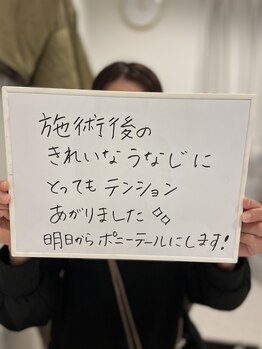 施術後の
きれいなうなじに
とってもテンション
あがりました
明日からポニーテールにします!